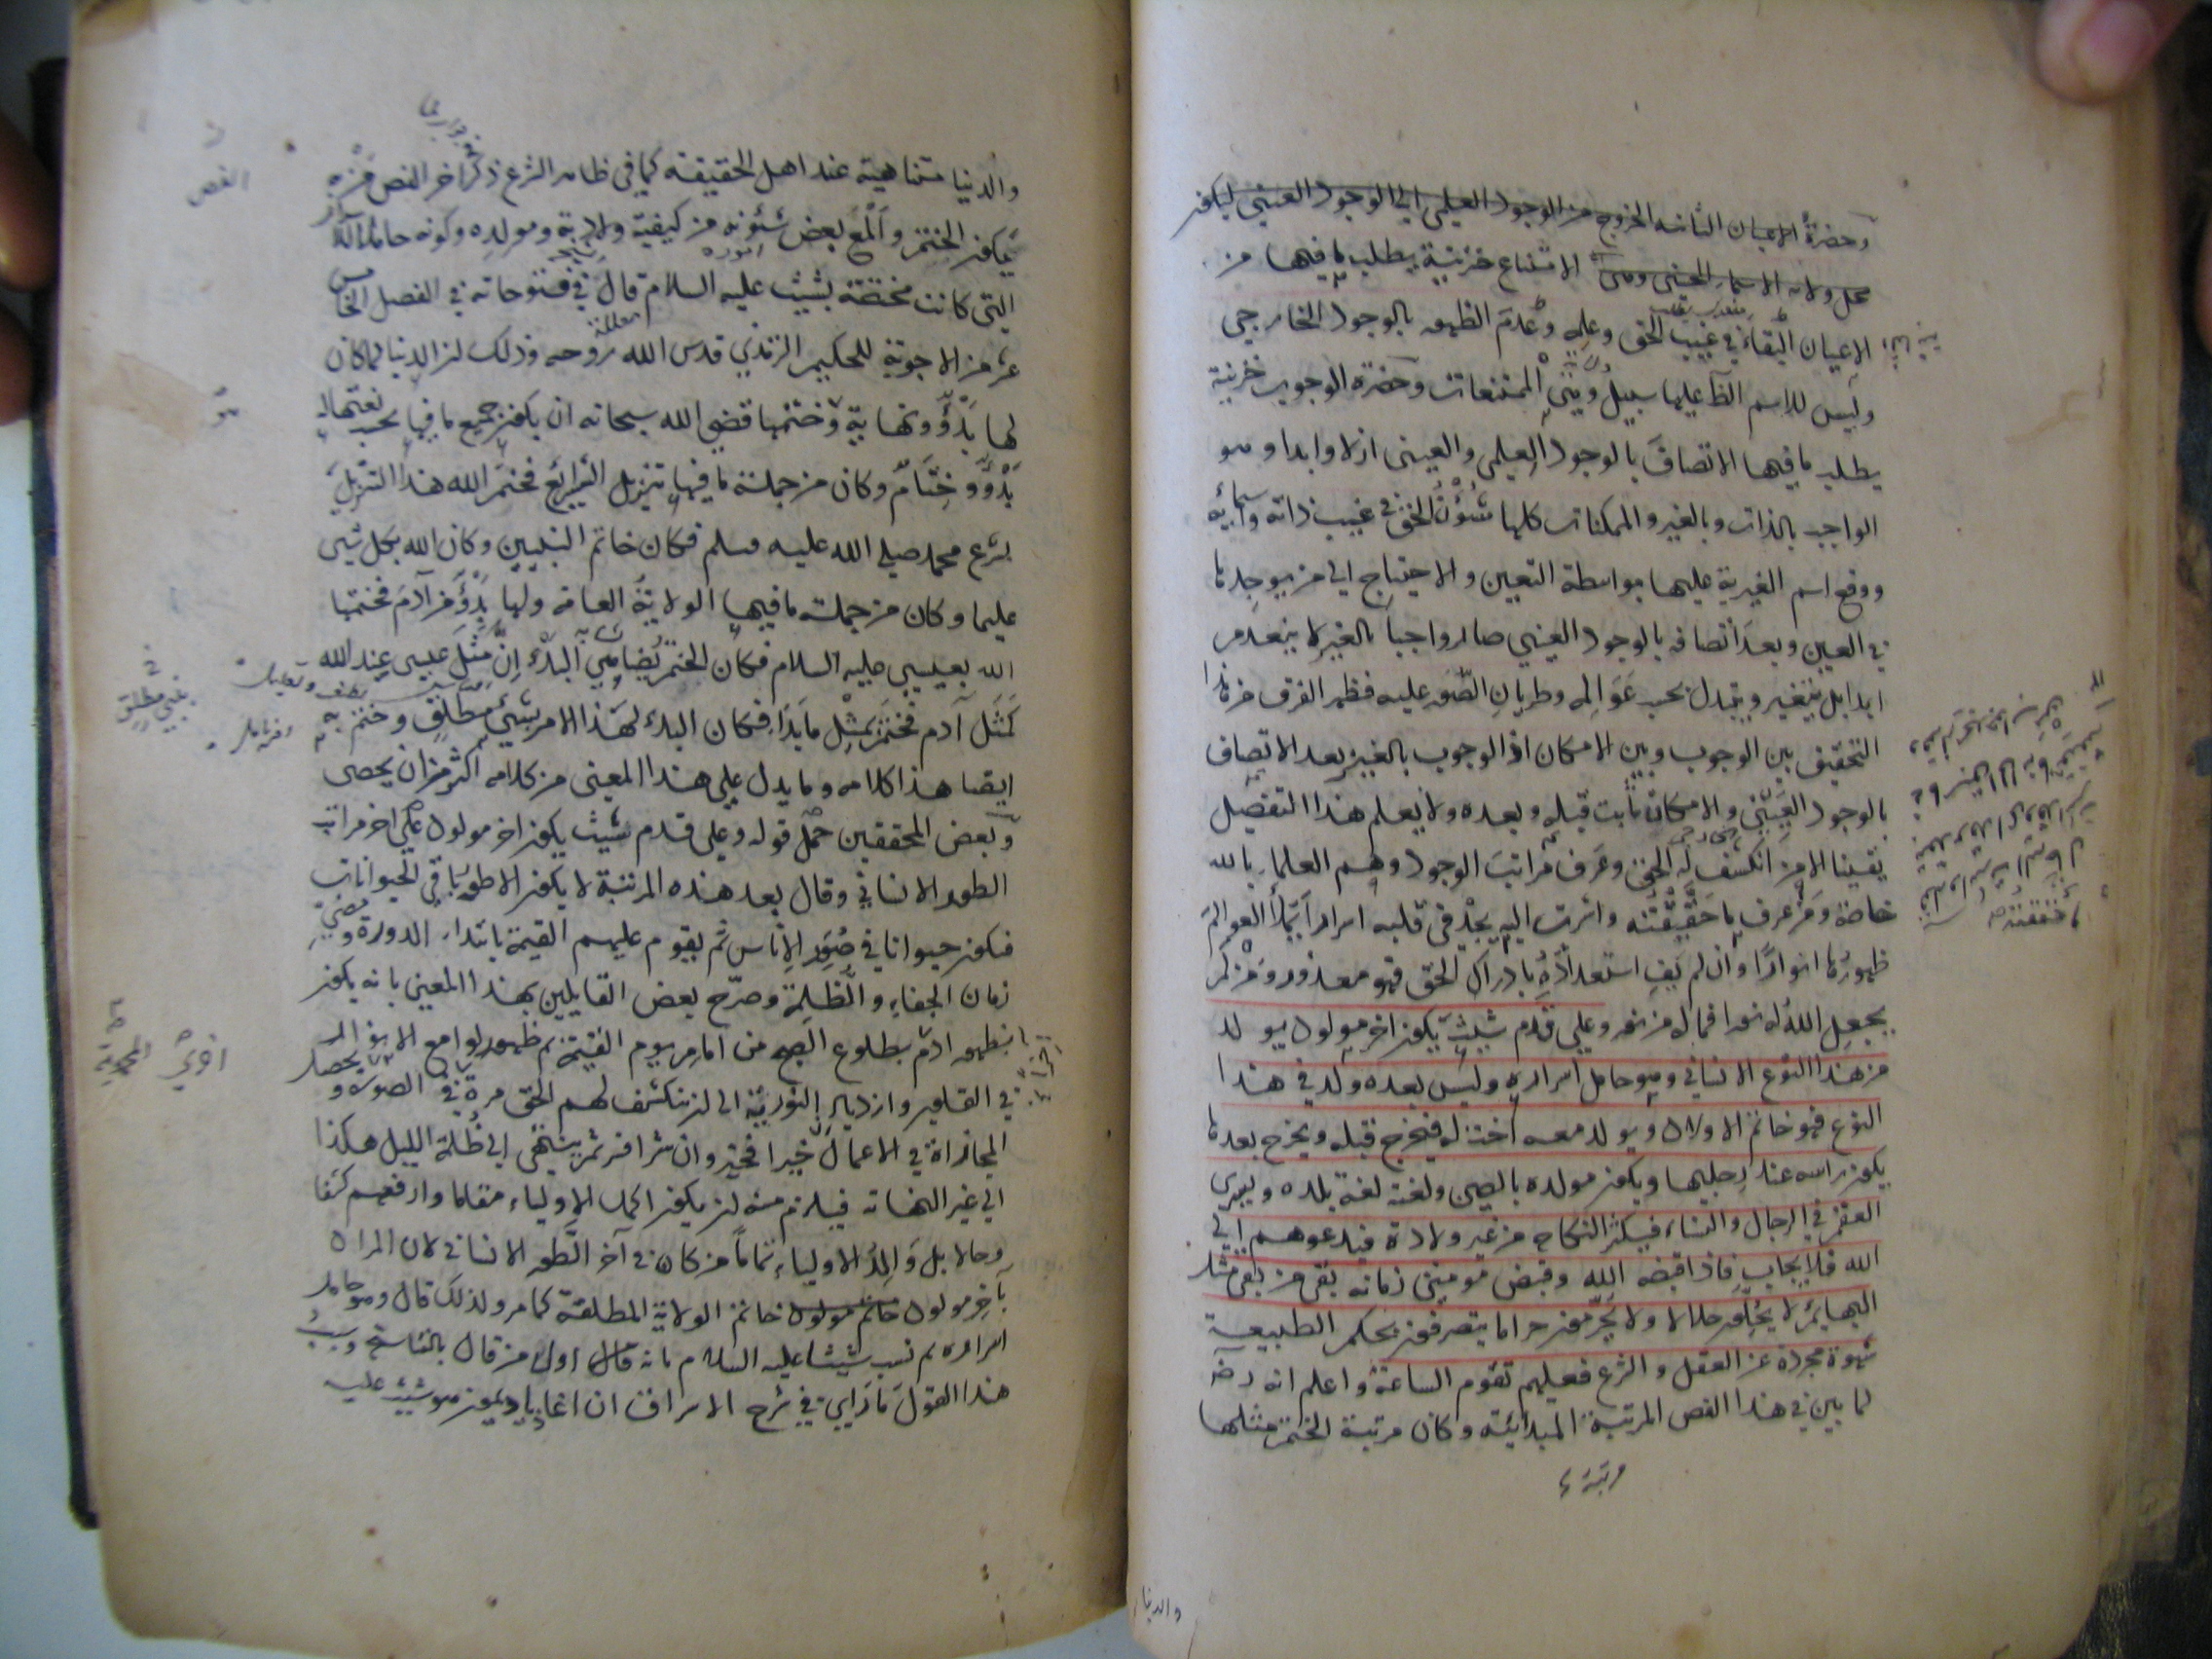 وحضرة الاعيان الثابتة الخروج من الوجود العلمي الى الوجود العيني ليكون
محل ولاية الاسماء الحسنى الامتناع خزينة يطلب ما فيها من
الاعيان البقاء في غيب الحق وعلمه وعدم الظهور بالوجود الخارجي
وليس للاسم الظاهر عليها سبيل الممتنعات وحضرة الوجوب خزينة
يطلب ما فيها الاتصاف بالوجود العلمي والعيني ازلا وابدا وهو
الواجب بالذات وبالغير والممكنات كلها شئون الحق في غيب ذاته واسمائه
ووقع اسم الغيرية عليها بواسطة التعين والاحتياج الى من يوجدها
في العين وبعد اتصافه بالوجود العيني صار واجبا بالغير لا ينعدم
ابدا بل يتغير ويتبدل بحسب عوالمه وطريان الصور عليه فظهر الفرق من هذا
التحقيق بين الوجوب وبين الامكان اذ الوجوب بالغير بعد الاتصاف
بالوجود العيني والامكان ثابت قبله وبعده ولا يعلم هذا التفصيل
يقينا الا من انكشف له الحق وعرف مراتب الوجود وهم العلماء بالله
خاصة ومن عرف ما حققته واشرت اليه يجد في قلبه اسرارا يملأ العوالم
ظهورها انوارا وان لم يف استعداده بادراك الحق فهو معذور ومن لم
يجعل الله له نورا فما له من نور وعلى قدم شيث يكون اخر مولود يولد
من هذا النوع الانساني وهو حامل اسراره وليس بعده ولد في هذا
النوع فهو خاتم الاولاد ويولد معه اخت له فيخرج قبله ويخرج بعدها
يكون راسه عند رجليها ويكون مولده بالصين ولغته لغة بلده ويسري
العقم في الرجال والنساء فيكثر النكاح من غير ولادة فيدعوهم الى
الله فلا يجاب فاذا قبضه الله وقبض مومني زمانه بقي من بقي مثل
البهايم لا يحلون حلالا ولا يحرمون حراما يتصرفون بحكم الطبيعة
شهوة مجردة عن العقل والشرع فعليهم تقوم الساعة واعلم انه رضه
لما بين في هذا الفص المرتبة المبدائية وكان مرتبة الختم مثلها
والدنيا
والدنيا متناهية عند اهل الحقيقة كما في ظاهر الشرع ذكر اخر الفص من به
يكون الختم والمع بعض شئونه من كيفية ولادته ومولده وكونه حاملا
التي كانت مختصة بشيث عليه السلام قال في فتوحاته في الفصل الخامس
عشر من الاجوبة للحكيم الترمذي قدس الله روحه وذلك لان الدنيا لما كان
لها بدؤ ونهاية وختمها قضى الله سبحانه ان يكون جميع ما فيها بحسب نعتها له
بدؤ وختام وكان من جملة ما فيها تنزيل الشرائع فختم الله هذا التنزيل
بشرع محمد صلى الله عليه وسلم فكان خاتم النبيين وكان الله بكل شيء
عليما وكان من جملة ما فيها الولاية العامة ولها بدؤ من آدم فختمها
الله بعيسى عليه السلام فكان الختم يضاهي البدؤ ان مثل عيسى عند الله
كمثل آدم فختم بمثل ما بدأ فكان البدء لهذا الامر بنبي مطلق وختم به
ايضا هذا كلامه وما يدل على هذا المعنى من كلامه اكثر من ان يحصى
وبعض المحققين حمل قوله وعلى قدم شيث يكون اخر مولود على اخر مراتب
الطور الانساني وقال بعد هذه المرتبة لا يكون الا طور باقي الحيوانات
فيكون حيوانا في صور الاناس ثم يقوم عليهم القيمة بابتداء الدورة ومضي
زمان الجفاء والظلمة وصرح بعض القايلين بهذا المعنى بانه يكون
بظهور ادم بطلوع الصبح من امام يوم القيمة ثم ظهور لوامع الانوار
في القلوب وازدياد النورية الى ان ينكشف لهم الحق مرة في الصور ويحصل
المجازاة في الاعمال ان خيرا فخير وان شرا فشر ثم ينتهي الى ظلمة الليل هكذا
الى غير النهاية فيلزم منه ان يكون اكمل الاولياء مقاما وارفعهم كشفا
وحالا بل والد الاولياء تماما من كان في آخر الطور الانساني لان المراد
بآخر مولود خاتم الولاية المطلقة كما مر ولذلك قال وهو حامل
اسراره ثم نسب شيثا عليه السلام بانه اول من قال بالتناسخ وسبب
هذا القول ما رأى في شرح الاشراق ان اغاثاذيمون هو شيث عليه